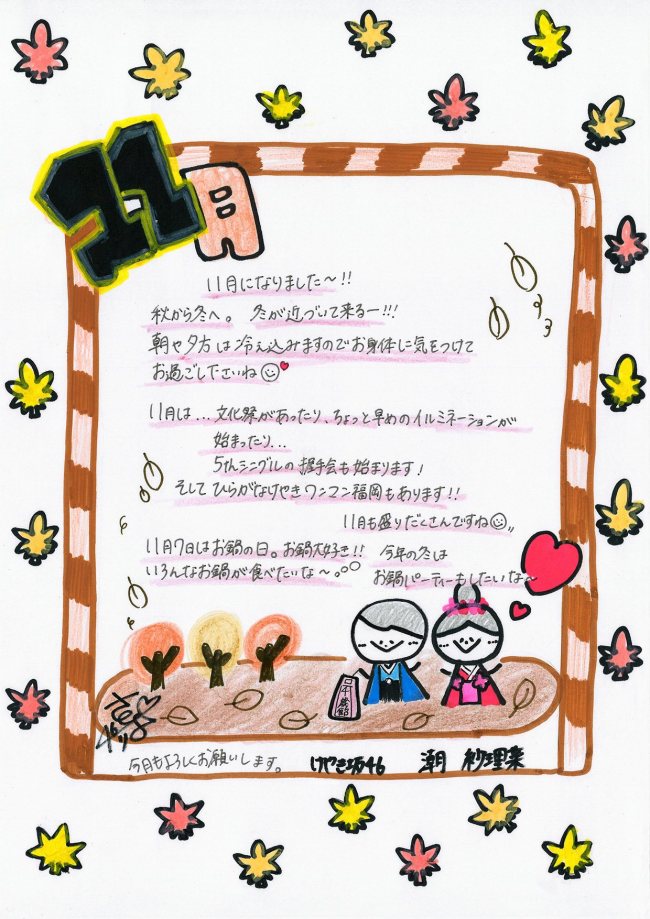 11月
11月になりました〜!!
秋から冬へ。 冬が近づいて来るー!!!
朝や夕方は冷え込みますのでお身体に気をつけて
お過ごしくださいね
11月は...文化祭があったり、ちょっと早めのイルミネーションが
始まったり...
5thシングルの握手会も始まります!
そしてひらがなけやきワンマン福岡もあります!!
11月も盛りだくさんですね
11月7日はお鍋の日。お鍋大好き!! 今年の冬は
いろんなお鍋が食べたいな〜。 お鍋パーティーもしたいな〜
千歳飴
今月もよろしくお願いします。 けやき坂46 潮 紗理菜